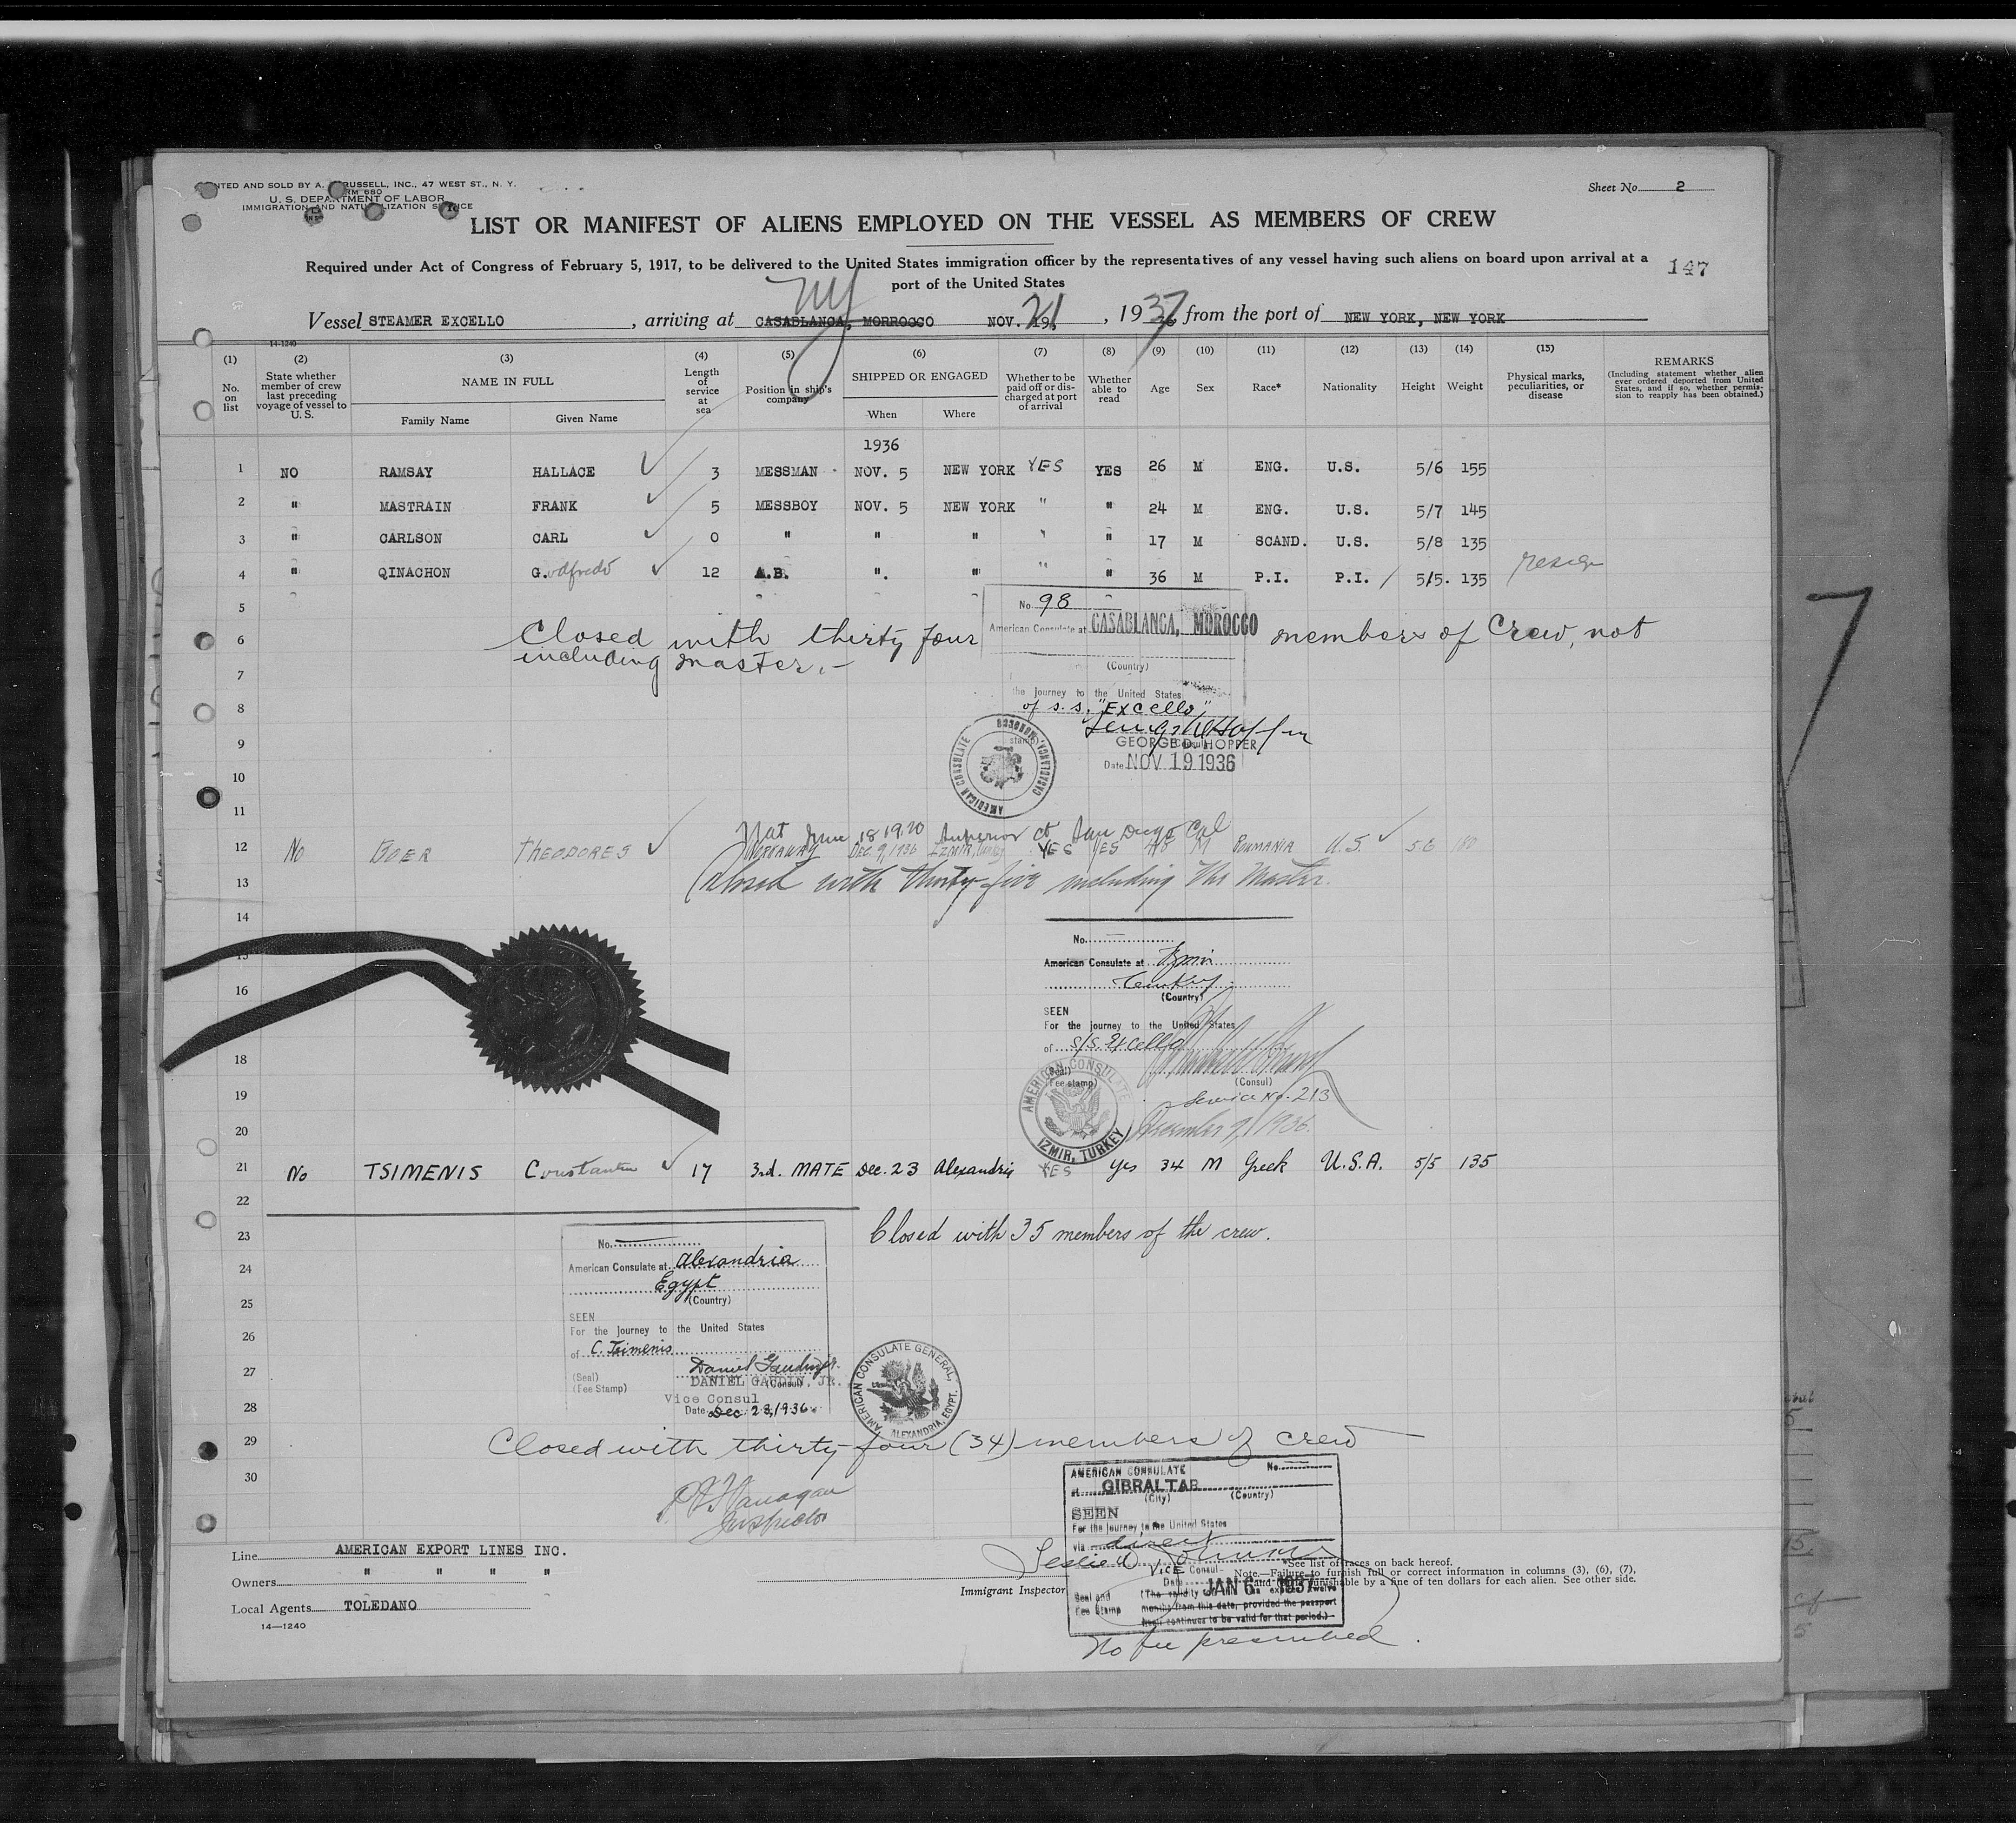 PRINTED AND SOLD BY A. RUSSELL, INC., 47 WEST ST., N. Y.
FORM 680
U. S. DEPARTMENT OF LABOR
IMMIGRATION AND NATURALIZATION SERVICE
Sheet No. 2
LIST OR MANIFEST OF ALIENS EMPLOYED ON THE VESSEL AS MEMBERS OF CREW
Required under Act of Congress of February 5, 1917, to be delivered to the United States immigration officer by the representatives of any vessel having such aliens on board upon arrival at a
port of the United States
147
NY
Vessel STEAMER EXCELLO, arriving at CASABLANCA, MORROCO NOV. 19, 21, 1936 37 from the port of NEW YORK, NEW YORK
14-1240
(1) (2) (3) (4) (5) (6) (7) (8) (9) (10) (11) (12) (13) (14) (15)
No. on list
State whether member of crew last preceding voyage of vessel to U. S.
NAME IN FULL
Family Name Given Name
Length of service at sea
Position in ship's company
SHIPPED OR ENGAGED
When Where
Whether to be paid off or discharged at port of arrival
Whether able to read
Age Sex Race* Nationality Height Weight
Physical marks, peculiarities, or disease
REMARKS
(Including statement whether alien ever ordered deported from United States, and if so, whether permission to reapply has been obtained.)
1936
1 NO RAMSAY HALLACE ✓ 3 MESSMAN NOV. 5 NEW YORK YES YES 26 M ENG. U.S. 5/6 155
2 " MASTRAIN FRANK ✓ 5 MESSBOY NOV. 5 NEW YORK " " 24 M ENG. U.S. 5/7 145
3 " CARLSON CARL ✓ 0 " " " " " 17 M SCAND. U.S. 5/8 135
4 " QINACHON G.odfredo ✓ 12 A.B. ". " " " 36 M P.I. P.I. / 5/5. 135
5
No. 98
American Consulate at CASABLANCA, MOROCCO
6 Closed with thirty four members of Crew, not
including master.-
(Country)
7
the journey to the United States
8
of s.s. "Excello"
9
GEORGE D. HOPPER
Date NOV 19 1936
AMERICAN CONSULATE CASABLANCA, MOROCCO
10
11
Nat June 18 1920 Superior ct San Diego Cal
12 No BOER THEODORES ✓ WORKAWAY DEC. 9, 1936 IZMIR, YES YES 48 M ROUMANIA U.S. ✓ 5 6 180
13 Closed with thirty-five including the Master.
14
No.
15
American Consulate at Izmir
16
Turkey
(Country)
SEEN
For the journey to the United States
of S/S. Excello
18
(Fee stamp)
(Consul)
19
Service No. 213
December 9, 1936.
20
AMERICAN CONSULATE IZMIR, TURKEY
21 No TSIMENIS Constantin ✓ 17 3rd. MATE Dec. 23 Alexandria YES Yes 34 M Greek U.S.A. 5/5 135
22
23 Closed with 35 members of the crew.
No.
24
American Consulate at Alexandria
Egypt
25
(Country)
SEEN
26
For the journey to the United States
of C. Tsimenis
27
(Seal)
(Fee Stamp)
DANIEL GAUDIN, JR.
(Consul)
Vice Consul
28
Date Dec 23, 1936
AMERICAN CONSULATE GENERAL, ALEXANDRIA, EGYPT.
29 Closed with thirty-four (34) members of crew
30
Inspector
AMERICAN CONSULATE No.
at GIBRALTAR
(City) (Country)
SEEN
For the journey to the United States
via direct
VICE Consul
Date JAN 6. 1937
Seal and
Fee Stamp
months from this date, provided the passport
continues to be valid for that period.)
No fee prescribed.
Line AMERICAN EXPORT LINES INC.
Owners " " " "
Local Agents TOLEDANO
14—1240
Immigrant Inspector
*See list of races on back hereof.
Note.—Failure to furnish full or correct information in columns (3), (6), (7),
punishable by a fine of ten dollars for each alien. See other side.
7